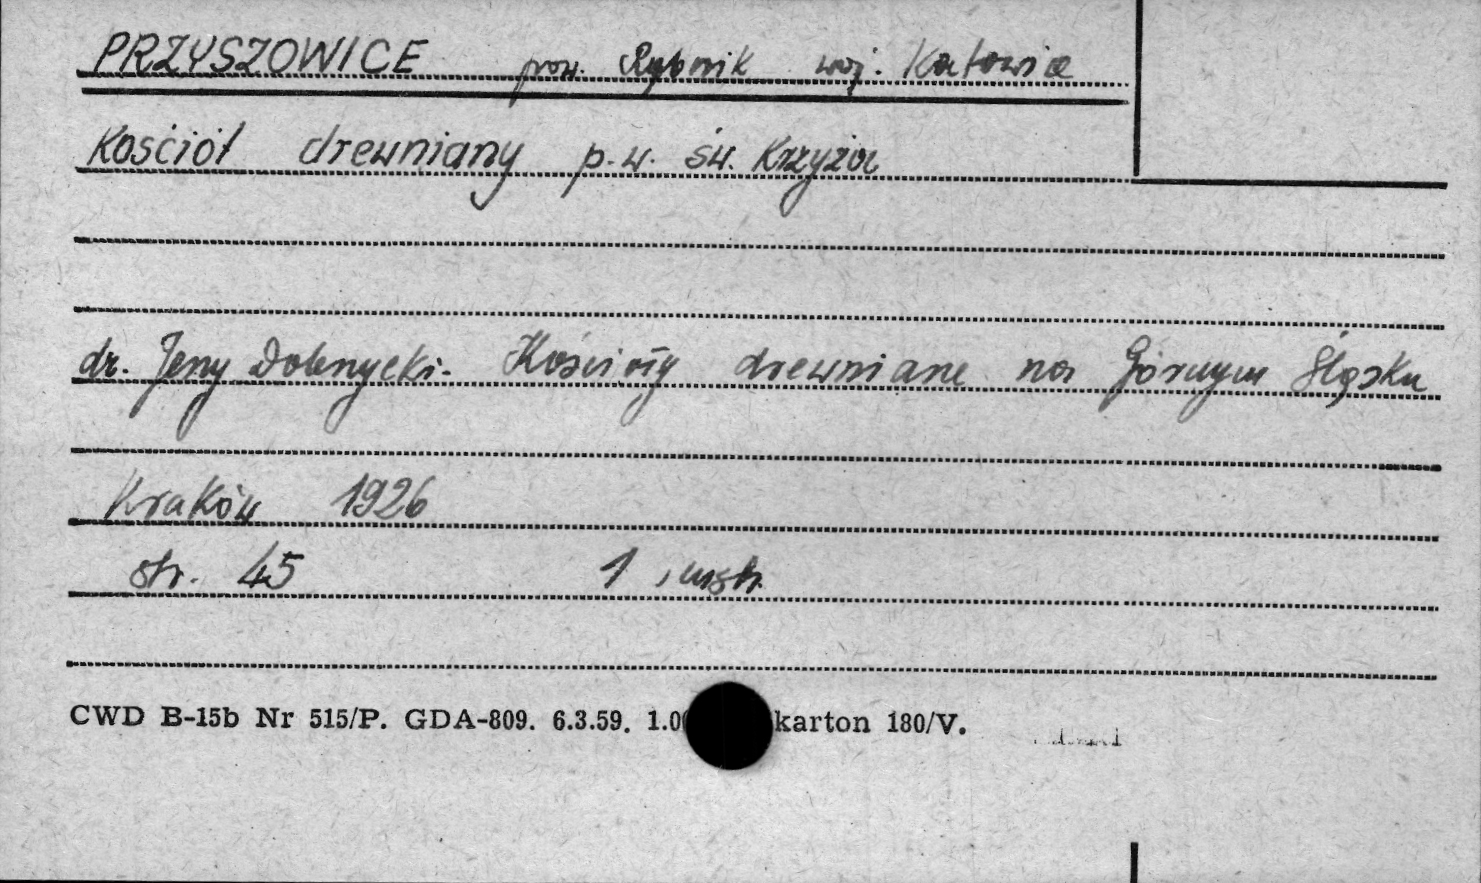 PRZYSZOWICE pow. Rybnik woj. Katowice
Kościół drewniany p.w. św. Krzyża
dr. Jerzy Dobrzycki - Kościoły drewniane na Górnym Śląsku
Kraków 1926
str. 45 1 ilustr.
CWD B-15b Nr 515/P. GDA-809. 6.3.59. 1.0 karton 180/V.